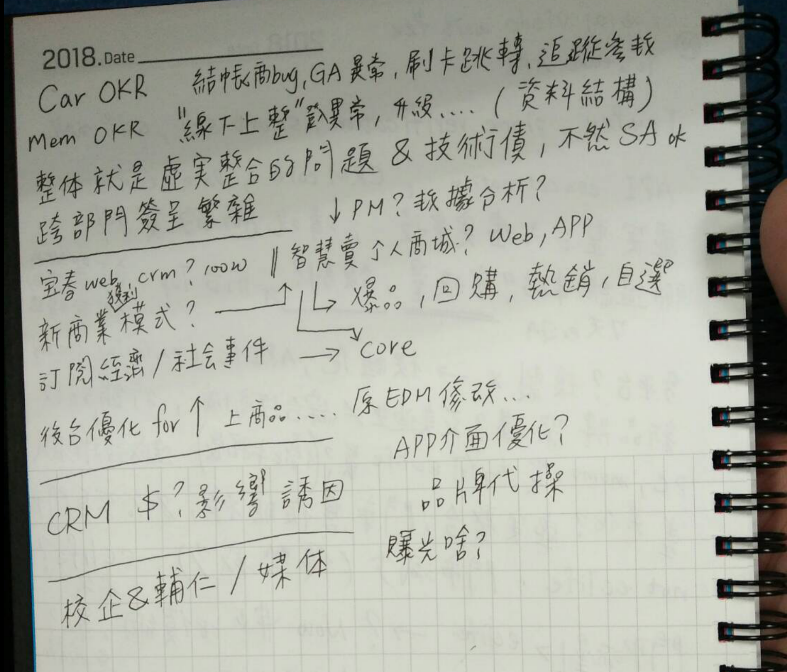 2018. Date
Car OKR 結帳商bug, GA異常, 刷卡跳轉, 追蹤參數
Mem OKR "線下上整"部異常, 升級.... (資料結構)
整体就是虛実整合的問題 & 技術債, 不然 SA ok
跨部門簽呈繁雜 ↓ PM? 数據分析?
宝春 web, crm? 100W || 智慧賣 个人商城? Web, APP
新商業獲利模式? → ↑ ↳ 爆品, 回購, 熱銷, 自選
訂閱經濟 / 社会事件 → core
後台優化 for ↑ 上商品..... 原EDM修改...
APP介面優化?
CRM $? 影響誘因 品牌代操
曝光啥?
校企&輔仁 / 媒体